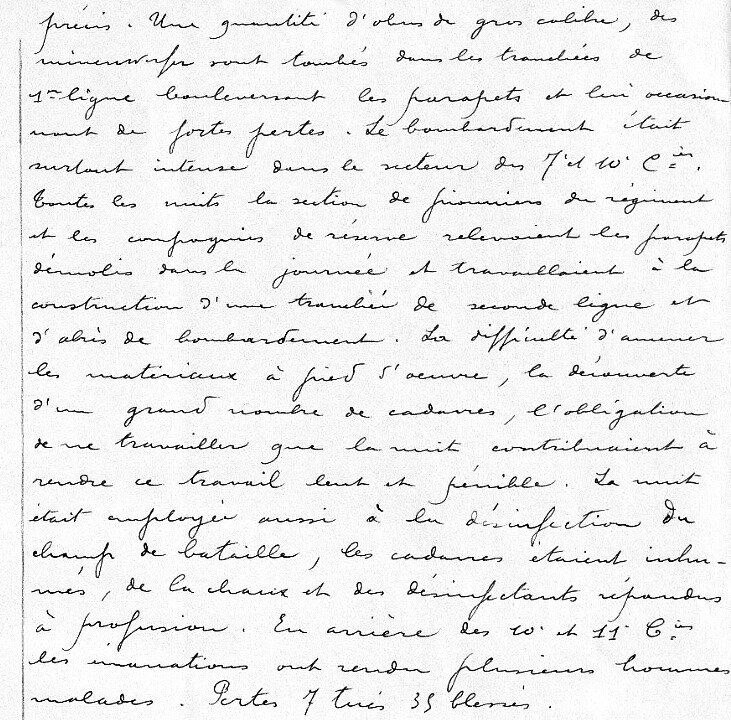 précis. Une quantité d'obus de gros calibre, des
minenwerfer sont tombés dans les tranchées de
1re ligne bouleversant les parapets et lui occasion
nant de fortes pertes. Le bombardement était
surtout intense dans le secteur des 7e et 10e Cies.
Toutes les nuits la section de pionniers du régiment
et les compagnies de réserve relevaient les parapets
démolis dans la journée et travaillaient à la
construction d'une tranchée de seconde ligne et
d'abris de bombardement. La difficulté d'amener
les matériaux à pied d'oeuvre, la découverte
d'un grand nombre de cadavres, l'obligation
de ne travailler que la nuit contribuaient à
rendre ce travail lent et pénible. La nuit
était employée aussi à la désinfection du
champ de bataille, les cadavres étaient inhu-
més, de la chaux et des désinfectants répandus
à profusion. En arrière des 10e et 11e Cies
les émanations ont rendu plusieurs hommes
malades. Pertes 7 tués 35 blessés.